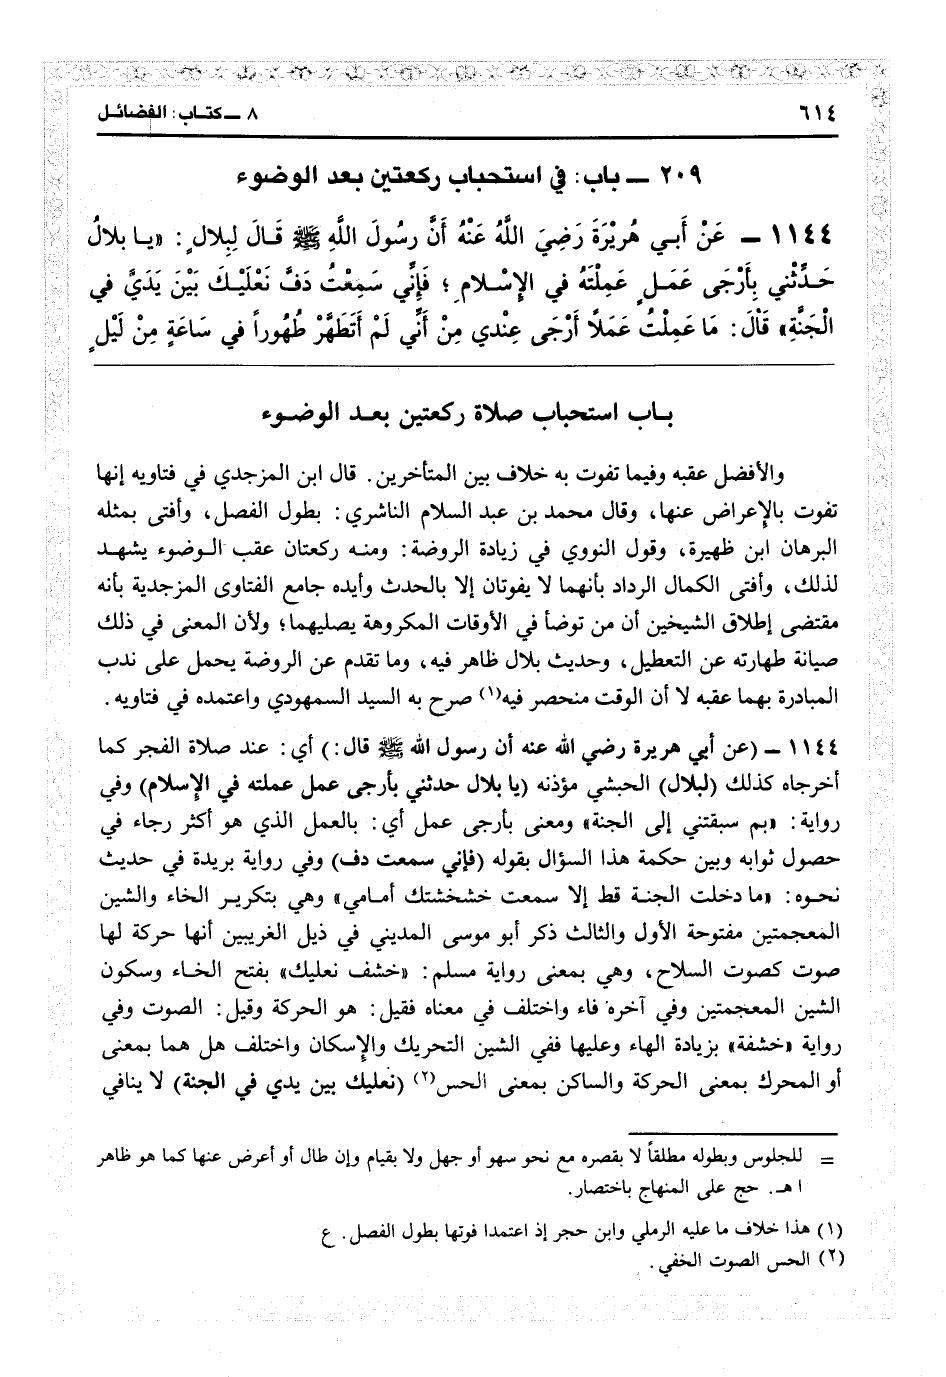 ٦١٤
٨ ــ كتاب: الفضائل
٢٠٩ ــ باب: في استحباب ركعتين بعد الوضوء
١١٤٤ ــ عَنْ أَبي هُرَيْرَةَ رَضِيَ اللَّهُ عَنْهُ أَنَّ رسُولَ اللَّهِ ﷺ قَالَ لِبِلالٍ: «يـا بلالُ
حَدِّثْني بِأَرْجَى عَمَلٍ عَمِلْتَهُ في الإِسْلامِ؛ فَإِنِّي سَمِعْتُ دَفَّ نَعْلَيْكَ بَيْنَ يَدَيَّ في
الْجَنَّةِ» قَالَ: مَا عَمِلْتُ عَمَلاً أَرْجَى عِنْدي مِنْ أَنِّي لَمْ أَتَطَهَّرْ طُهُوراً في سَاعَةٍ مِنْ لَيْلٍ
بـاب استحباب صلاة ركعتين بعـد الوضـوء
والأفضل عقبه وفيما تفوت به خلاف بين المتأخرين. قال ابن المزجدي في فتاويه إنها
تفوت بالإِعراض عنها، وقال محمد بن عبد السلام الناشري: بطول الفصل، وأفتى بمثله
البرهان ابن ظهيرة، وقول النووي في زيادة الروضة: ومنـه ركعتان عقب الـوضوء يشهـد
لذلك، وأفتى الكمال الرداد بأنهما لا يفوتان إلا بالحدث وأيده جامع الفتاوى المزجدية بأنه
مقتضى إطلاق الشيخين أن من توضأ في الأوقات المكروهة يصليهما؛ ولأن المعنى في ذلك
صيانة طهارته عن التعطيل، وحديث بلال ظاهر فيه، وما تقدم عن الروضة يحمل على ندب
المبادرة بهما عقبه لا أن الوقت منحصر فيه(١) صرح به السيد السمهودي واعتمده في فتاويه.
١١٤٤ ــ (عن أبي هريرة رضي الله عنه أن رسول الله ﷺ قال:) أي: عند صلاة الفجر كما
أخرجاه كذلك (لبلال) الحبشي مؤذنه (يا بلال حدثني بأرجى عمل عملته في الإِسلام) وفي
رواية: «بم سبقتني إلى الجنة» ومعنى بأرجى عمل أي: بالعمل الذي هو أكثر رجاء في
حصول ثوابه وبين حكمة هذا السؤال بقوله (فإني سمعت دف) وفي رواية بريدة في حديث
نحـوه: «ما دخلت الجنـة قط إلا سمعت خشخشتك أمـامي» وهي بتكريـر الخاء والشين
المعجمتين مفتوحة الأول والثالث ذكر أبو موسى المديني في ذيل الغريبين أنها حركة لها
صوت كصوت السلاح، وهي بمعنى رواية مسلم: «خشف نعليك» بفتح الخـاء وسكون
الشين المعجمتين وفي آخره فاء واختلف في معناه فقيل: هو الحركة وقيل: الصوت وفي
رواية «خشفة» بزيادة الهاء وعليها ففي الشين التحريك والإِسكان واختلف هل هما بمعنى
أو المحرك بمعنى الحركة والساكن بمعنى الحس(٢) (نعليك بين يدي في الجنة) لا ينافي
= للجلوس وبطوله مطلقاً لا بقصره مع نحو سهو أو جهل ولا بقيام وإن طال أو أعرض عنها كما هو ظاهر
ا هـ. حج على المنهاج باختصار.
(١) هذا خلاف ما عليه الرملي وابن حجر إذ اعتمدا فوتها بطول الفصل. ع
(٢) الحس الصوت الخفي.